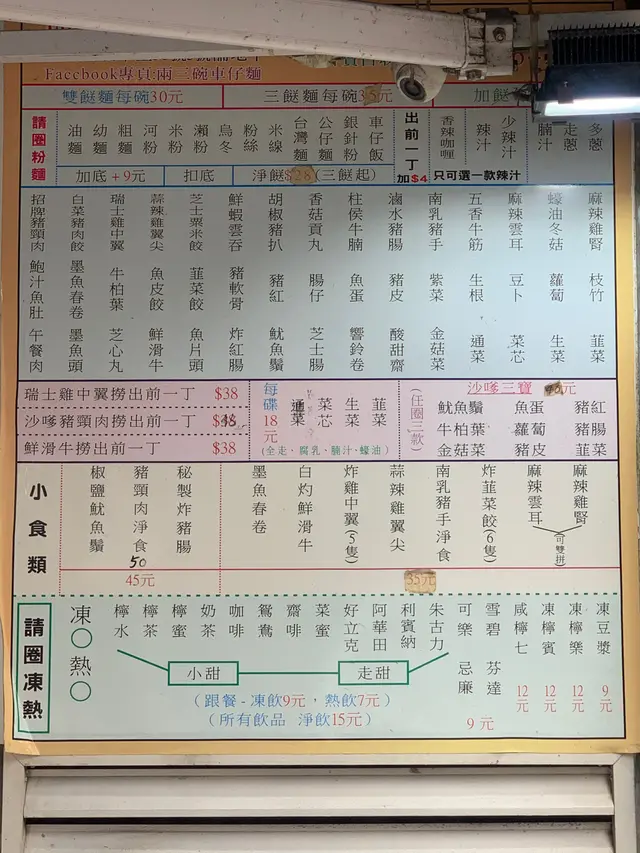 Facebook專頁:兩三碗車仔麵
雙餸麵每碗30元
三餸麵每碗35元
加餸
請圈粉麵
油麵
幼麵
粗麵
河粉
米粉
瀨粉
烏冬
粉絲
米線
台灣麵
公仔麵
銀針粉
車仔飯
加底+9元
扣底
淨餸$28(三餸起)
出前一丁加$4
香辣咖喱
辣汁
少辣汁
腩汁
走蔥
多蔥
只可選一款辣汁
招牌豬頸肉
白菜豬肉餃
瑞士雞中翼
蒜辣雞翼尖
芝士粟米餃
鮮蝦雲吞
胡椒豬扒
香菇貢丸
柱侯牛腩
滷水豬腸
南乳豬手
五香牛筋
麻辣雲耳
蠔油冬菇
麻辣雞腎
鮑汁魚肚
墨魚春卷
牛柏葉
魚皮餃
韮菜餃
豬軟骨
豬紅
腸仔
魚蛋
豬皮
紫菜
生根
豆卜
蘿蔔
枝竹
午餐肉
墨魚頭
芝心丸
鮮滑牛
魚片頭
炸紅腸
魷魚鬚
芝士腸
響鈴卷
酸甜齋
金菇菜
通菜
菜芯
生菜
韮菜
瑞士雞中翼撈出前一丁 $38
沙嗲豬頸肉撈出前一丁
鮮滑牛撈出前一丁 $38
每碟18元
通菜
菜芯
生菜
韮菜
(全走·腐乳·腩汁·蠔油)
(任圈三款)
沙嗲三寶
魷魚鬚 魚蛋 豬紅
牛柏葉 蘿蔔 豬腸
金菇菜 豬皮 韮菜
小食類
椒鹽魷魚鬚
豬頸肉淨食
50
秘製炸豬腸
45元
墨魚春卷
白灼鮮滑牛
炸雞中翼(5隻)
蒜辣雞翼尖
南乳豬手淨食
炸韮菜餃(6隻)
麻辣雲耳
麻辣雞腎
(可雙拼)
35元
請圈凍熱
凍○熱○
檸水
檸茶
檸蜜
奶茶
咖啡
鴛鴦
齋啡
菜蜜
好立克
阿華田
利賓納
朱古力
可樂
雪碧
忌廉
芬達
9元
咸檸七
12元
凍檸賓
12元
凍檸樂
12元
凍豆漿
9元
小甜
走甜
(跟餐-凍飲9元,熱飲7元)
(所有飲品 淨飲15元)